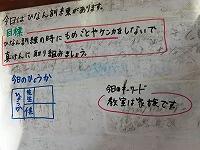 今日はひなん訓練があります。
目標
ひなん訓練の時にもめごとやケンカをしないで
真けんに取り組みましょう。
今日のひょうか
今日のキーワード
教室は家族です